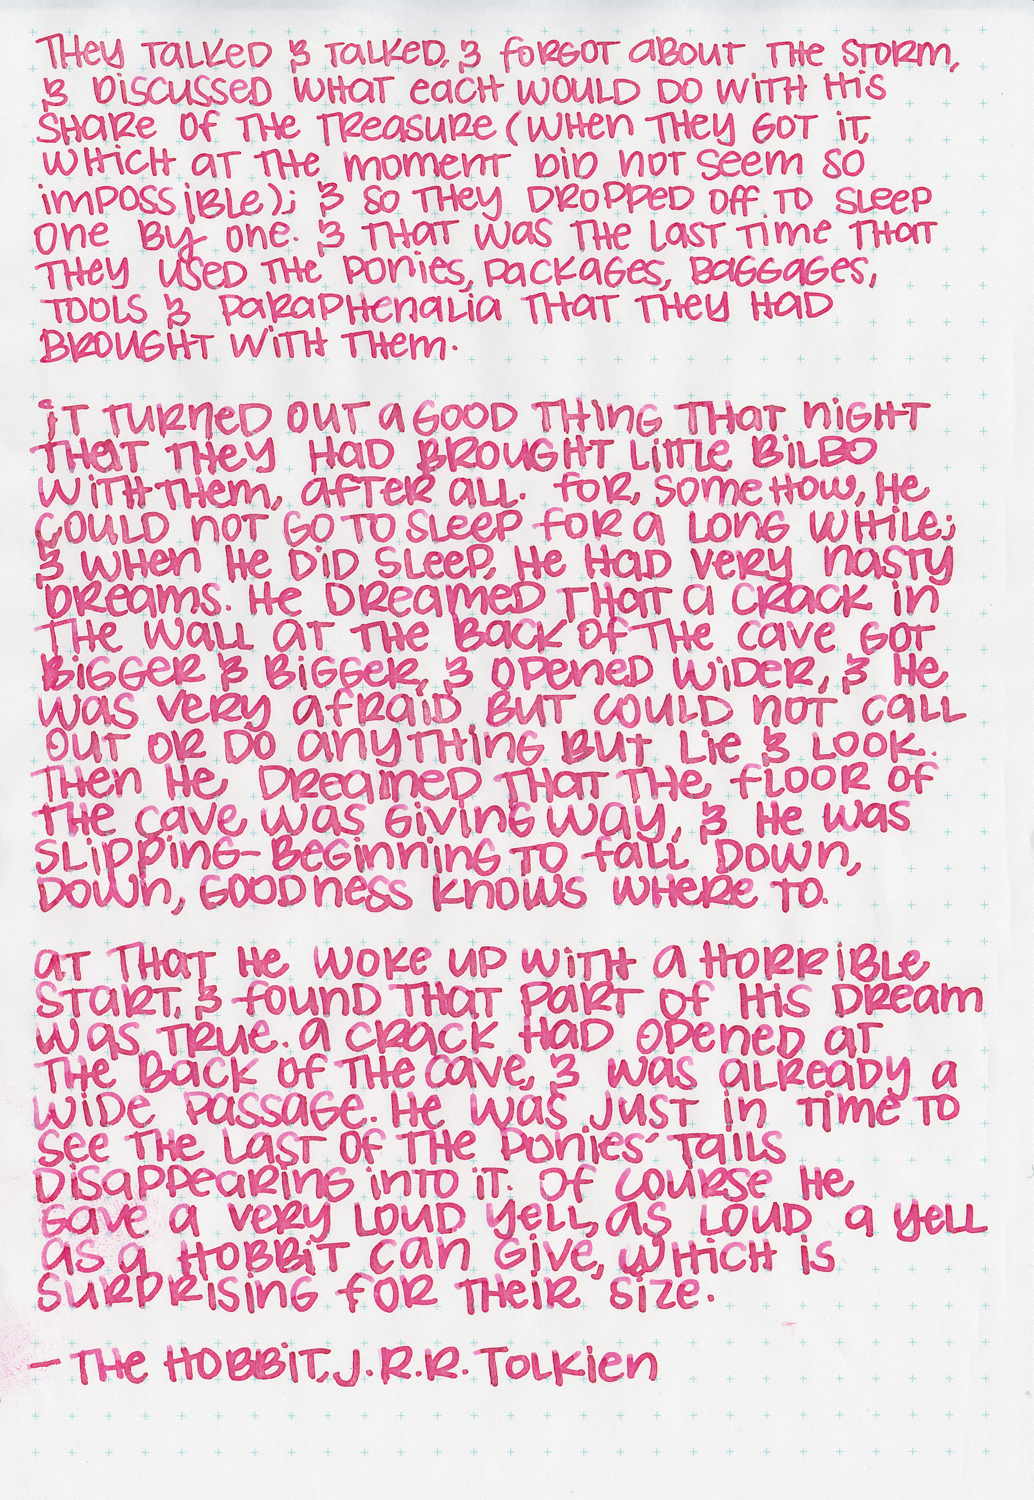 They talked & talked, & forgot about the storm,
& discussed what each would do with his
share of the treasure (when they got it,
which at the moment did not seem so
impossible); & so they dropped off to sleep
one by one. & that was the last time that
they used the ponies, packages, baggages,
tools & paraphenalia that they had
brought with them.

it turned out a good thing that night
that they had brought little Bilbo
with them, after all. for, somehow, he
could not go to sleep for a long while;
& when he did sleep, he had very nasty
dreams. He dreamed that a crack in
the wall at the back of the cave got
bigger & bigger, & opened wider, & he
was very afraid but could not call
out or do anything but lie & look.
Then he dreamed that the floor of
the cave was giving way, & he was
slipping-beginning to fall down,
down, goodness knows where to.

at that he woke up with a horrible
start, & found that part of his dream
was true. a crack had opened at
the back of the cave, & was already a
wide passage. He was just in time to
see the last of the ponies' tails
disappearing into it. Of course he
gave a very loud yell, as loud a yell
as a hobbit can give, which is
surprising for their size.

- The Hobbit, J.R.R. Tolkien